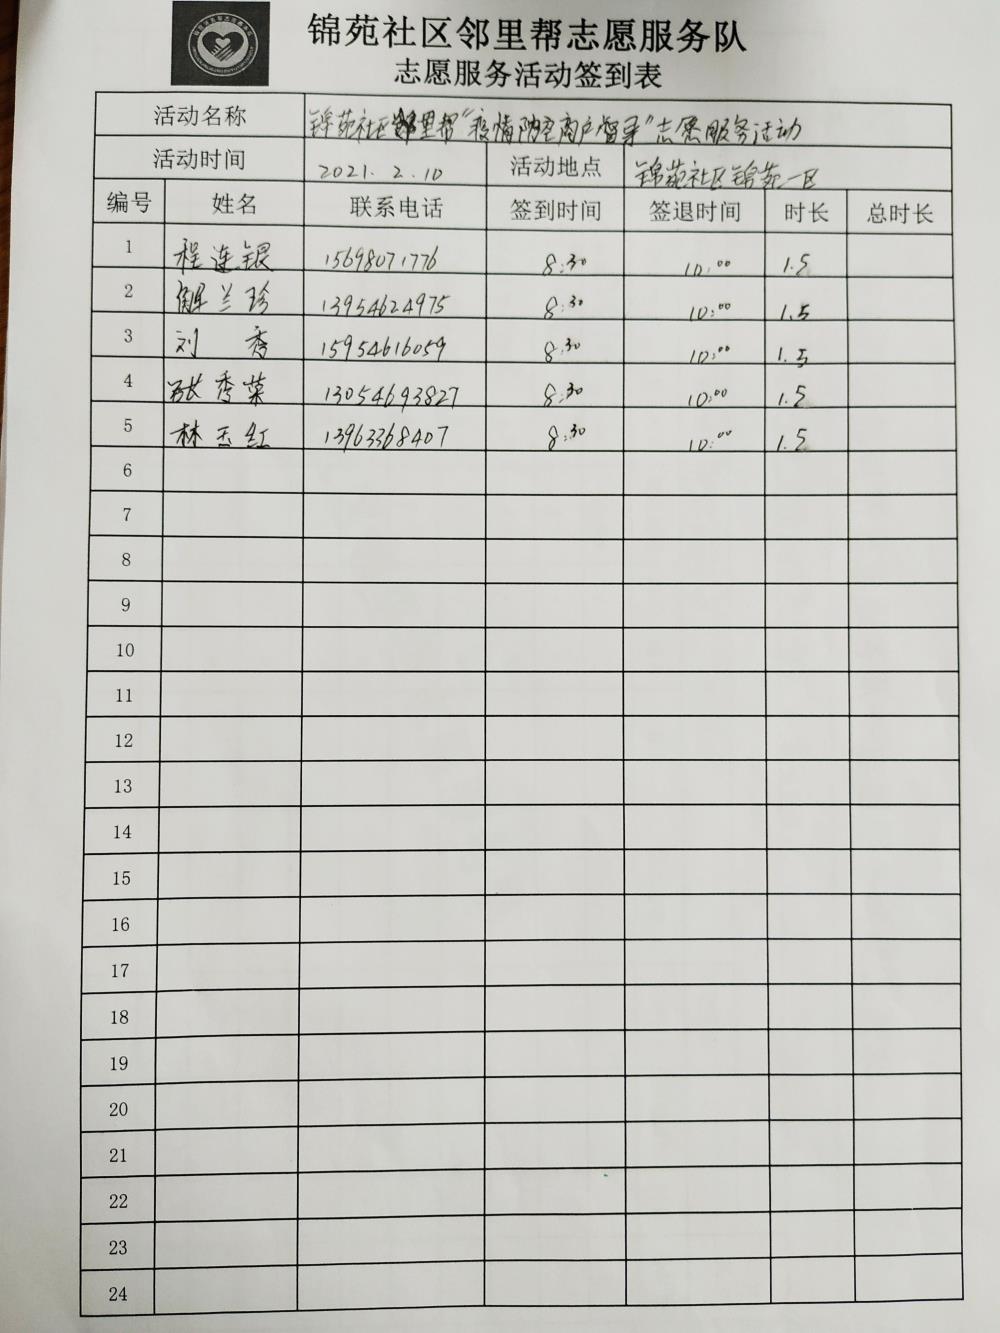 锦苑社区邻里帮志愿服务队
志愿服务活动签到表
活动名称 锦苑社区邻里帮"疫情防控商户督导"志愿服务活动
活动时间 2021.2.10 活动地点 锦苑社区锦苑一区
编号 姓名 联系电话 签到时间 签退时间 时长 总时长
1 程连银 15698071776 8:30 10:00 1.5
2 解兰珍 13954624975 8:30 10:00 1.5
3 刘秀 15954616059 8:30 10:00 1.5
4 张秀菜 13054693827 8:30 10:00 1.5
5 林玉红 13963368407 8:30 10:00 1.5
6
7
8
9
10
11
12
13
14
15
16
17
18
19
20
21
22
23
24